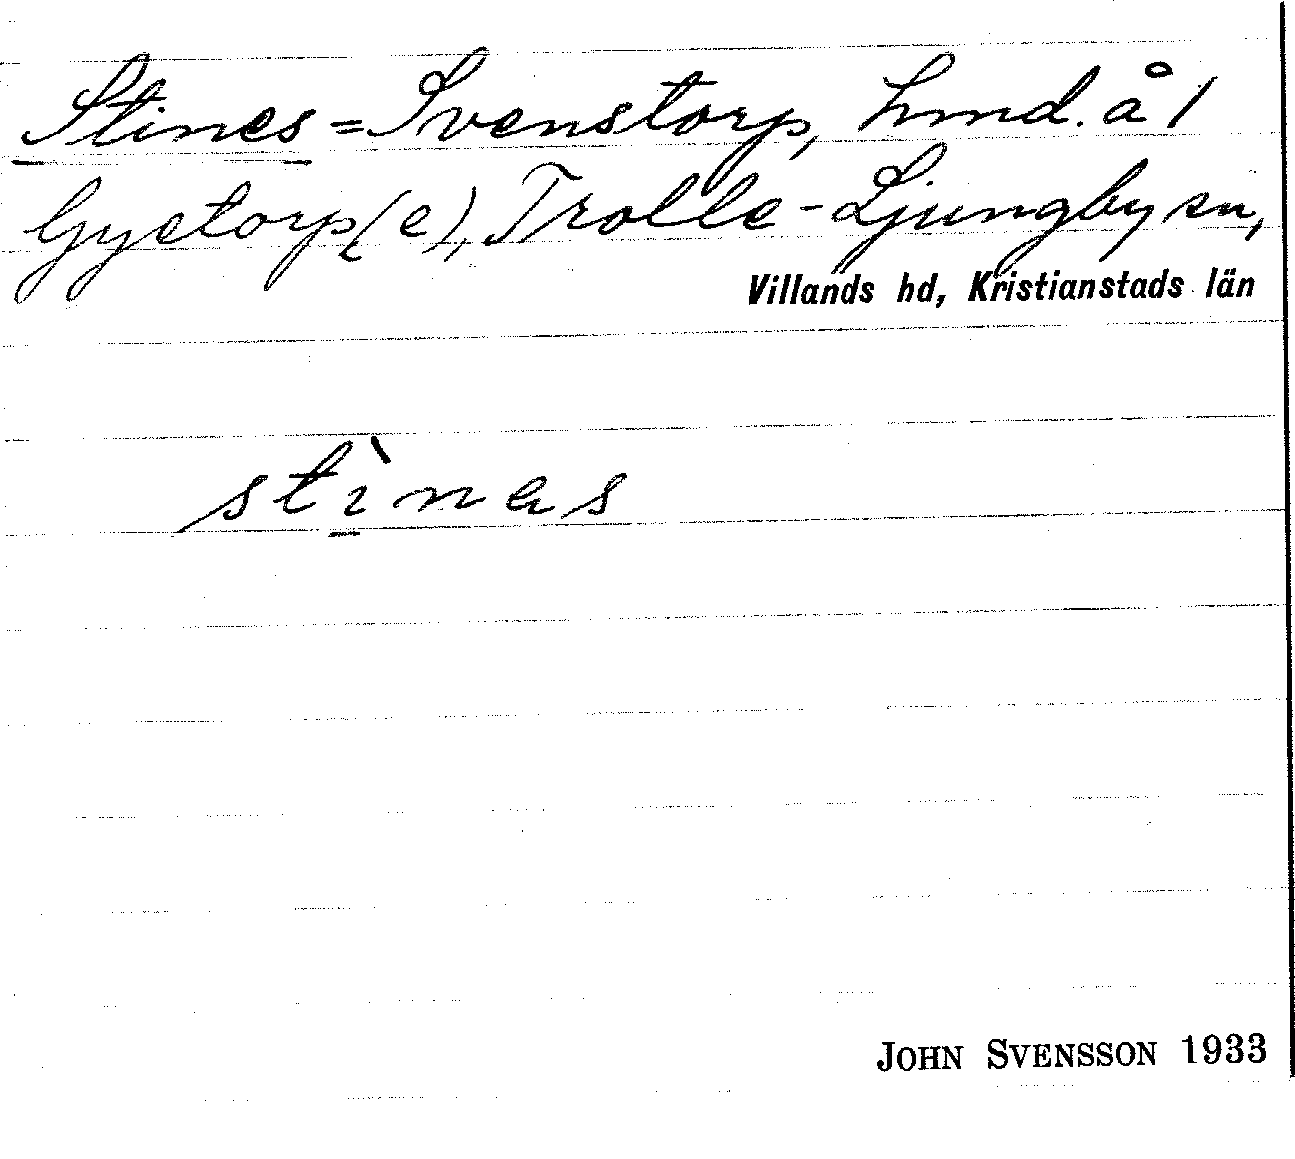 Stines = Svenstorp, hmd. å 1
Gyetorp (e), Trolle-Ljungby sn,
Villands hd, Kristianstads län
stìnas
JOHN SVENSSON 1933